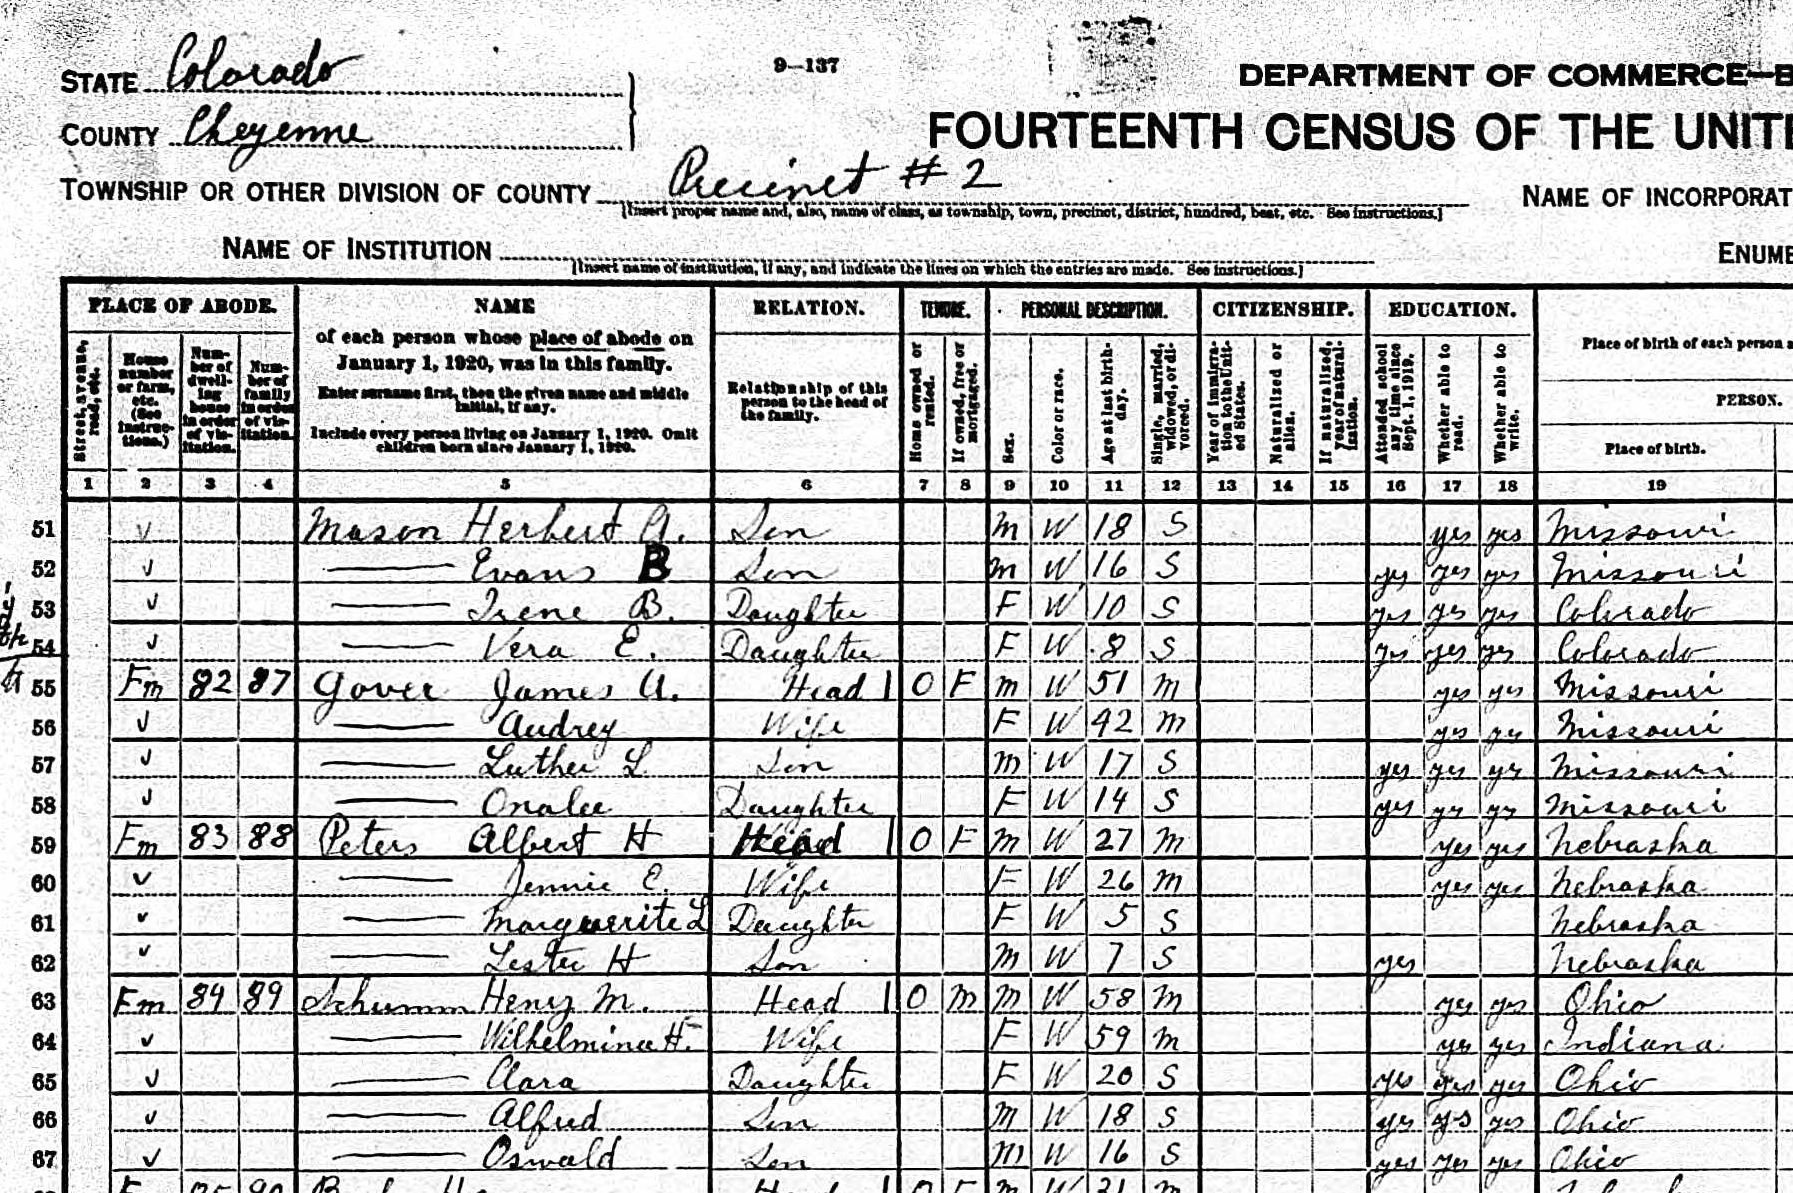 9—137
STATE Colorado
DEPARTMENT OF COMMERCE—B
COUNTY Cheyenne
FOURTEENTH CENSUS OF THE UNITE
TOWNSHIP OR OTHER DIVISION OF COUNTY Precinct # 2
NAME OF INCORPORAT
[Insert proper name and, also, name of class, as township, town, precinct, district, hundred, beat, etc. See instructions.]
NAME OF INSTITUTION
ENUME
[Insert name of institution, if any, and indicate the lines on which the entries are made. See instructions.]
PLACE OF ABODE. NAME RELATION. TENURE. PERSONAL DESCRIPTION. CITIZENSHIP. EDUCATION.
Street, avenue, road, etc.
House number or farm, etc. (See instructions.)
Number of dwelling house in order of visitation.
Number of family in order of visitation.
of each person whose place of abode on
January 1, 1920, was in this family.
Enter surname first, then the given name and middle
initial, if any.
Include every person living on January 1, 1920. Omit
children born since January 1, 1920.
Relationship of this
person to the head of
the family.
Home owned or rented.
If owned, free or mortgaged.
Sex.
Color or race.
Age at last birthday.
Single, married, widowed, or divorced.
Year of immigration to the United States.
Naturalized or alien.
If naturalized, year of naturalization.
Attended school any time since Sept. 1, 1919.
Whether able to read.
Whether able to write.
Place of birth of each person a
PERSON.
Place of birth.
1 2 3 4 5 6 7 8 9 10 11 12 13 14 15 16 17 18 19
51 Mason Herbert A. Son M W 18 S yes yes Missouri
52 Evans B Son M W 16 S yes yes yes Missouri
53 Irene B. Daughter F W 10 S yes yes yes Colorado
54 Vera E. Daughter F W 8 S yes yes yes Colorado
55 Fm 82 87 Gover James A. Head 1 O F M W 51 M yes yes Missouri
56 Audrey Wife F W 42 M yes yes Missouri
57 Luther L. Son M W 17 S yes yes yes Missouri
58 Onalee Daughter F W 14 S yes yes yes Missouri
59 Fm 83 88 Peters Albert H Head 1 O F M W 27 M yes yes Nebraska
60 Jennie C. Wife F W 26 M yes yes Nebraska
61 Marguerite L Daughter F W 5 S Nebraska
62 Lester H Son M W 7 S yes Nebraska
63 Fm 84 89 Schumm Henry M. Head 1 O M M W 58 M yes yes Ohio
64 Wilhelmina H. Wife F W 59 M yes yes Indiana
65 Clara Daughter F W 20 S yes yes yes Ohio
66 Alfred Son M W 18 S yes yes yes Ohio
67 Oswald Son M W 16 S yes yes yes Ohio